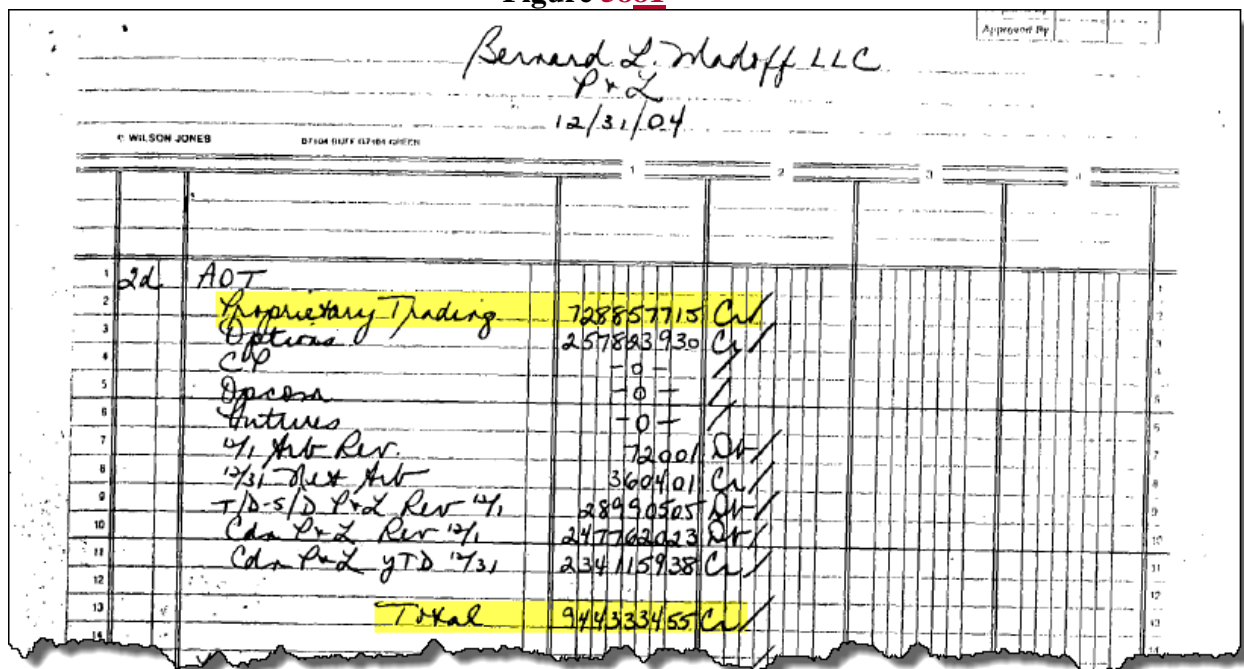 Figure
Approved By
Bernard L. Madoff LLC
P & L
12/31/04
© WILSON JONES GREEN
1 2 3 4
1 2d AOT 1
2 Proprietary Trading 728857715 Cr/ 2
3 Options 257823930 Cr/ 3
4 CP -0- / 4
5 Opcosn -0- / 5
6 Futures -0- / 6
7 12/1 Arb Rev. 72001 Db/ 7
8 12/31 Net Arb 360401 Cr/ 8
9 T/D-S/D P&L Rev 12/1 28990505 Db/ 9
10 Cdn P&L Rev 12/1 247762023 Db/ 10
11 Cdn P&L YTD 12/31 234115938 Cr/ 11
12 12
13 Total 944333455 Cr/ 13
14 14